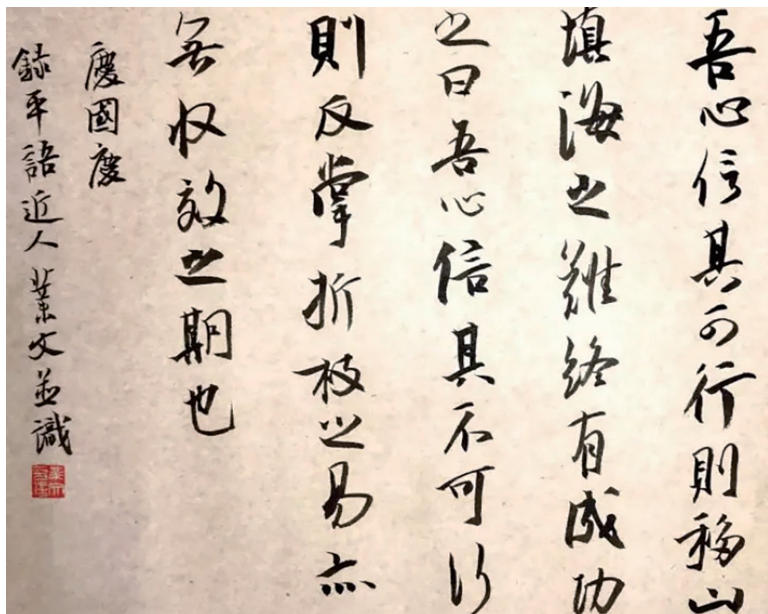 吾心信其可行則移山
填海之難終有成功
之日吾心信其不可行
則反掌折枝之易亦
無收效之期也
慶國慶
錄平語近人 業文並識